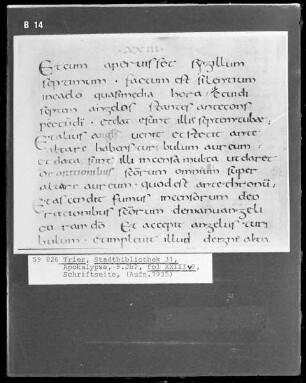 B 14
XXIII
Et cum aperuisset sigillum
septimum · factum est silentium
in caelo quasi media hora · Et uidi
septem angelos stantes in conspec
tu dei · et datae sunt illis septem tubae ·
Et alius angls uenit et stetit ante
altare habens turibulum aureum ·
et data sunt illi incensa multa ut daret
orationibus scorum omnium super
altare aureum · quod est ante thronu
Et ascendit fumus incensorum deo
rationibus scorum de manu angeli
coram do · Et accepit angelus turi
bulum · et impleuit illud de igne alta
59 826 Trier, Stadtbibliothek 31,
Apokalypse, 9.Jh?, fol XXIII v,
Schriftseite, (Aufn.1935)